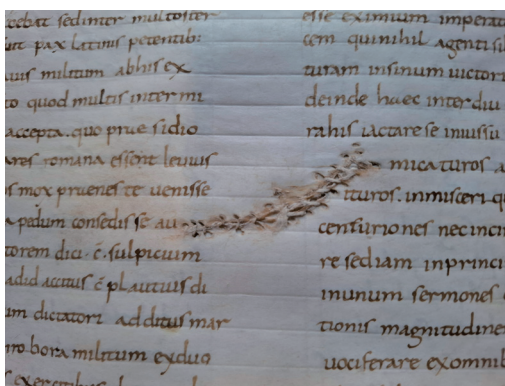 cebat sed inter multos ter
pax latinis petentib:
militum abhis ex
to quod multis inter mi
accepta. quo prae sidio
ares romana essent leuius
s mox praenes te uenisse
pedum consedis se au
torem dici. c. sulpicium
addictus c plautius di
um dictatori additus mar
robora militum exduo
exercitibus
esse eximium imperat
cem quinihil agenti si
turam insinum uictori
deinde haec inter diu
rahis iactare se iniussu
mica turos a
ituros. inmisceri q
centuriones necinci
re sediam inprinci
inunum sermones
tionis magnitudine
uociferare exomnib